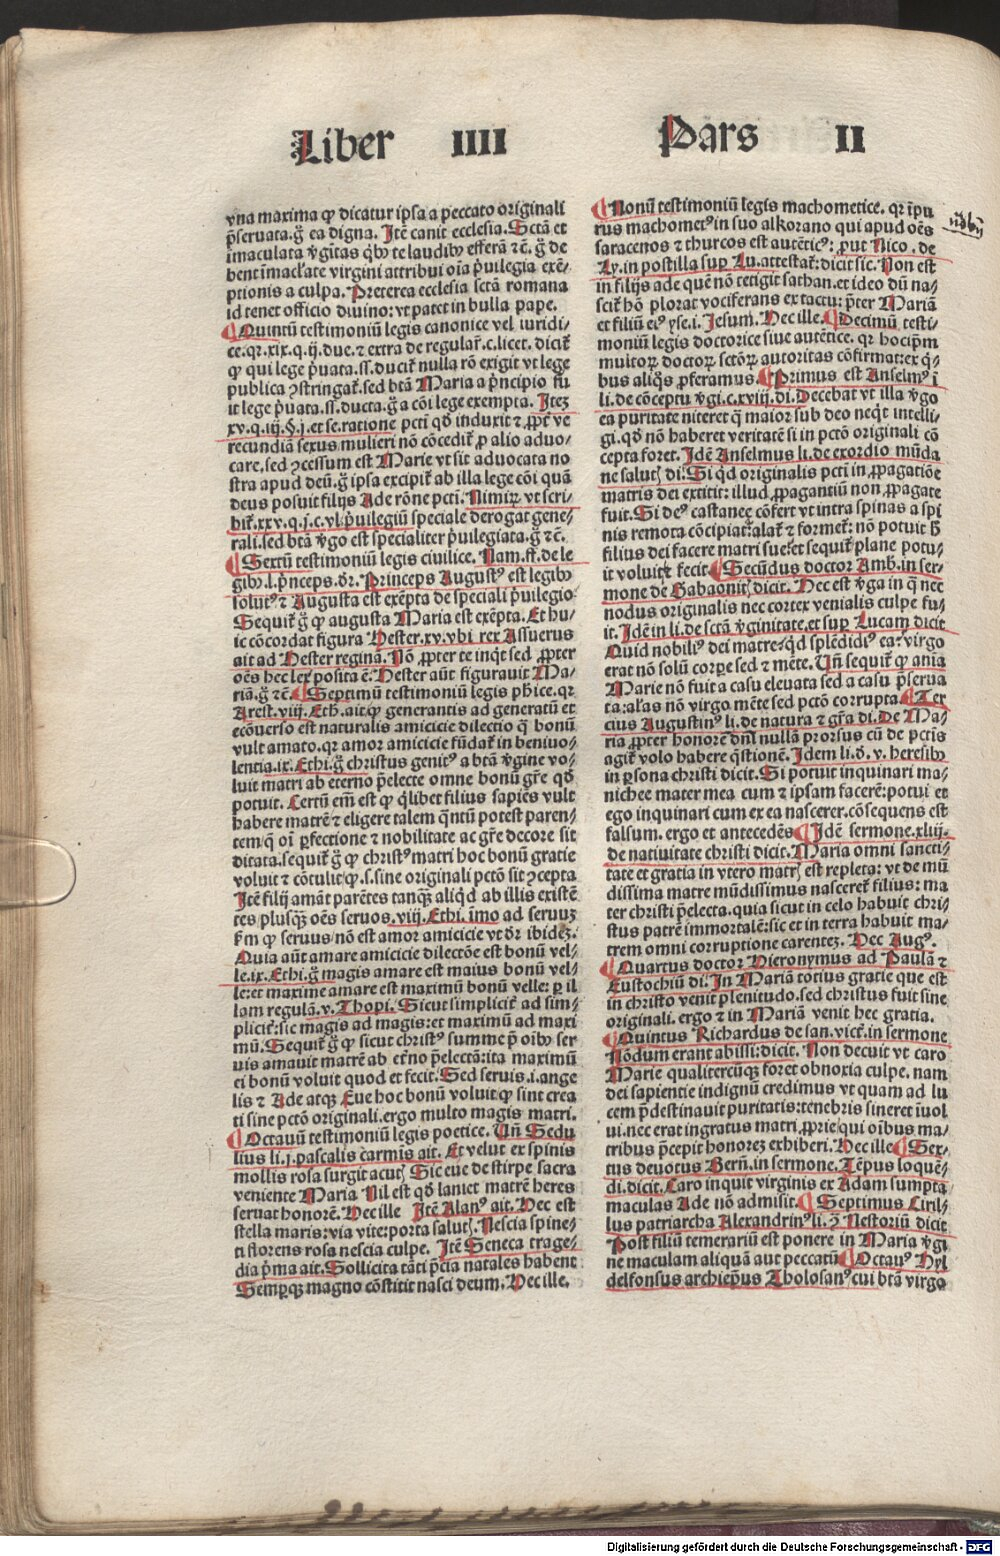 Liber IIII Pars II
vna maxima ꝙ dicatur ipsa a peccato originali
p̃seruata.g̃ ea digna. Itẽ canit ecclesia. Sctã et
ĩmaculata v̓gĩtas q̃bꝰ te laudibꝰ efferã ⁊c̃. g̃ de
bent ĩmacl̓ate virgini attribui oĩa p̓uilegia exẽ⸗
ptionis a culpa. Preterea ecclesia sctã romana
id tenet officio diuino: vt patet in bulla pape.
¶ Quintũ testimoniũ legis canonice vel iuridi⸗
ce. qꝛ. xix. q. ij. due. ⁊ extra de regularꝭ. c. licet. dicit᷑
ꝙ qui lege p̓uata. ſſ. ducit᷑ nulla rõ exigit vt lege
publica ꝯstringat᷑. sed btã Maria a p̓ncipio fu
it lege p̓uata. ſſ. ducta. g̃ a cõi lege exempta. Itez
xv. q. iij. §. j. et se. ratione pctĩ qd̓ induxit ⁊ ꝓpt̓ ve
recundiã sexus mulieri nõ cõcedit᷑ ꝓ alio aduo⸗
care. sed ꝯcessum est Marie vt sit aduocata no
stra apud deũ. g̃ ipsa excipit᷑ ab illa lege cõi quã
deus posuit filijs Ade rõne pctĩ. Nimiꝝ vt scri⸗
bit᷑. xxv. q. j. c. vl. p̓uilegiũ speciale derogat gene⸗
rali. sed btã v̓go est specialiter p̓uilegiata. g̃ ⁊c̃.
¶ Sextũ testimoniũ legis ciuilice. Nam. ff. de le
gibꝰ. l. p̓nceps. dr̃. Princeps Augustꝰ est legibꝰ
solutꝰ ⁊ Augusta est exẽpta de speciali p̓uilegio
Sequit᷑ g̃ ꝙ augusta Maria est exẽpta. Et hu⸗
ic cõcordat figura Hester. xv. vbi rex Assuerus
ait ad Hester regina. Nõ ꝓpter te inqt̓ sed ꝓpter
oẽs hec lex posita ẽ: Hester aũt figurauit Ma⸗
riã. g̃ ⁊c̃. ¶ Septimũ testimoniũ legis ph̃ice. qꝛ
Arest. viij. Eth. ait ꝙ generantis ad generatũ et
ecõuerso est naturalis amicicie dilectio q̃ bonũ
vult amato. qꝛ amor amicicie fũdat᷑ in beniuo⸗
lentia. ix. Ethi. g̃ christus genitꝰ a btã v̓gine vo⸗
luit matri ab eterno p̃electe omne bonũ gr̃e qd̓
potuit. Certũ em̃ est ꝙ q̓libet filius sapiẽs vult
habere matrẽ ⁊ eligere talem q̃ntũ potest paren⸗
tem/ q̃ oĩ ꝑfectione ⁊ nobilitate ac gr̃e decore sit
ditata. sequit᷑ g̃ ꝙ christꝰ matri hoc bonũ gratie
voluit ⁊ cõtulit/ ꝙ. s. sine originali pctõ sit ꝯcepta
Itẽ filij amãt parẽtes tanqꝫ aliqd̓ ab illis existẽ
tes plusqꝫ oẽs seruos. viij. Ethi. imo ad seruuꝫ
ẜm ꝙ seruus nõ est amor amicicie vt dr̃ ibidez.
Quia aũt amare amicicie dilectõe est bonũ vel⸗
le. ix. Ethi. g̃ magis amare est maius bonũ vel⸗
le: et maxime amare est maximũ bonũ velle: ꝑ il
lam regulã. v. Thopi. Sicut simplicit̓ ad sim⸗
plicit̓: sic magis ad magis: et maximũ ad maxi
mũ. Sequit᷑ g̃ ꝙ sicut christꝰ summe p̃ oĩbꝰ ser
uis amauit matrẽ ab et̓no p̃electã: ita maximũ
ei bonũ voluit quod et fecit. Sed seruis. i. ange
lis ⁊ Ade atqꝫ Eue hoc bonũ voluit ꝙ sint crea
ti sine pctõ originali. ergo multo magis matri.
¶ Octauũ testimoniũ legis poetice. Vñ Sedu
lius li. j. pascalis carmĩs ait. Et velut ex spinis
mollis rosa surgit acutꝭ Sic eue de stirpe sacra
veniente Maria Nil est qd̓ laniet matrẽ heres
seruat honorẽ. Hec ille Itẽ Alanꝰ ait. Hec est
stella maris: via vite: porta salutꝭ. Nescia spine⸗
ti florens rosa nescia culpe. Itẽ Seneca trage⸗
dia p̓ma ait. Sollicita tãti p̃cia natales habent
Semꝑqꝫ magno cõstitit nasci deum. Hec ille.
¶ Nonũ testimoniũ legis machometice. qꝛ ĩpu
rus machometꝰ in suo alkorano qui apud oẽs
saracenos ⁊ thurcos est autẽticꝰ: ꝓut Nico. de
Ly. in postilla suꝑ Lu. attestat᷑: dicit sic. Non est
in filijs ade quẽ nõ tetigit sathan. et ideo dũ na⸗
scit᷑ hõ plorat vociferans ex tactu: p̃ter Mariã
et filiũ eiꝰ yse. i. Jesum. Hec ille. ¶ Decimũ testi⸗
moniũ legis doctorice siue autẽtice. qꝛ hoc ip̃m
multoꝝ doctoꝝ sctõꝝ autoritas cõfirmat: ex q̓⸗
bus aliq̃s ꝓferamus. ¶ Primus est Anselmꝰ ĩ
li. de cõceptu v̓gi. c. xviij. di. Decebat vt illa v̓go
ea puritate niteret q̃ maior sub deo neqt̓ intelli⸗
gi. qd̓ nõ haberet veritatẽ si in pctõ originali cõ
cepta foret. Idẽ Anselmus li. de exordio mũda
ne salutꝭ di. Si qd̓ originalis pctĩ in ꝓpagatiõe
matris dei extitit: illud ꝓpagantiũ non ꝓpagate
fuit. Si deꝰ castanee cõfert vt intra spinas a spi
nis remota cõcipiat᷑: alat᷑ ⁊ formet᷑: nõ potuit h̓
filius dei facere matri sue: et sequit᷑ plane potu⸗
it voluit ⁊ fecit. ¶ Secũdus doctor Amb. in ser⸗
mone de Gabaonitꝭ dicit. Hec est v̓ga in q̃ nec
nodus originalis nec cortex venialis culpe fu⸗
it. Idẽ in li. de sctã v̓ginitate. et suꝑ Lucam dicit
Quid nobiliꝰ dei matre: qd̓ splẽdidiꝰ ea: virgo
erat nõ solũ corꝑe sed ⁊ mẽte. Vñ sequit᷑ ꝙ anĩa
Marie nõ fuit a casu eleuata sed a casu p̃serua
ta: al̓as nõ virgo mẽte sed pctõ corrupta. ¶ Ter
cius Augustinꝰ li. de natura ⁊ gr̃a di. De Ma⸗
ria ꝓpter honorẽ dñi nullã prorsus cũ de pctis
agit᷑ volo habere q̃stionẽ. Idem li. d̓. v. heresibꝰ
in ꝑsona christi dicit. Si potuit inquinari ma⸗
nichee mater mea cum ⁊ ipsam facerẽ: potui et
ego inquinari cum ex ea nascerer. cõsequens est
falsum. ergo et antecedẽs. ¶ Idẽ sermone. xliij.
de natiuitate christi dicit. Maria omni sancti⸗
tate et gratia in vtero matrꝭ est repleta: vt de mũ
dissima matre mũdissimus nasceret᷑ filius: ma
ter christi p̃electa. quia sicut in celo habuit chri⸗
stus patrẽ immortalẽ: sic et in terra habuit ma⸗
trem omni corruptione carentez. Hec Augꝰ.
¶ Quartus doctor Hieronymus ad Paulã ⁊
Eustochiũ di. In Mariã totius gratie que est
in christo venit plenitudo. sed christus fuit sine
originali. ergo ⁊ in Mariã venit hec gratia.
¶ Quintus Richardus de san. vict̓. in sermone
Nõdum erant abissi: dicit. Non decuit vt caro
Marie qualitercũqꝫ foret obnoxia culpe. nam
dei sapientie indignũ credimus vt quam ad lu
cem p̃destinauit puritatis: tenebris sineret ĩuol
ui. nec erat ingratus matri ꝓprie/ qui oĩbus ma⸗
tribus p̃cepit honorez exhiberi. Hec ille ¶ Sex⸗
tus deuotus Bern̓. in sermone. Tẽpus loquẽ⸗
di. dicit. Caro inquit virginis ex Adam sumpta
maculas Ade nõ admisit. ¶ Septimus Ciril⸗
lus patriarcha Alexandrinꝰ li. ꝯ̃ Nestoriũ dicit
Post filiũ temerariũ est ponere in Maria v̓gi
ne maculam aliquã aut peccatũ ¶ Octauꝰ Hyl
delfonsus archiep̃us Tholosanꝰ cui btã virgo
Digitalisierung gefördert durch die Deutsche Forschungsgemeinschaft - DFG